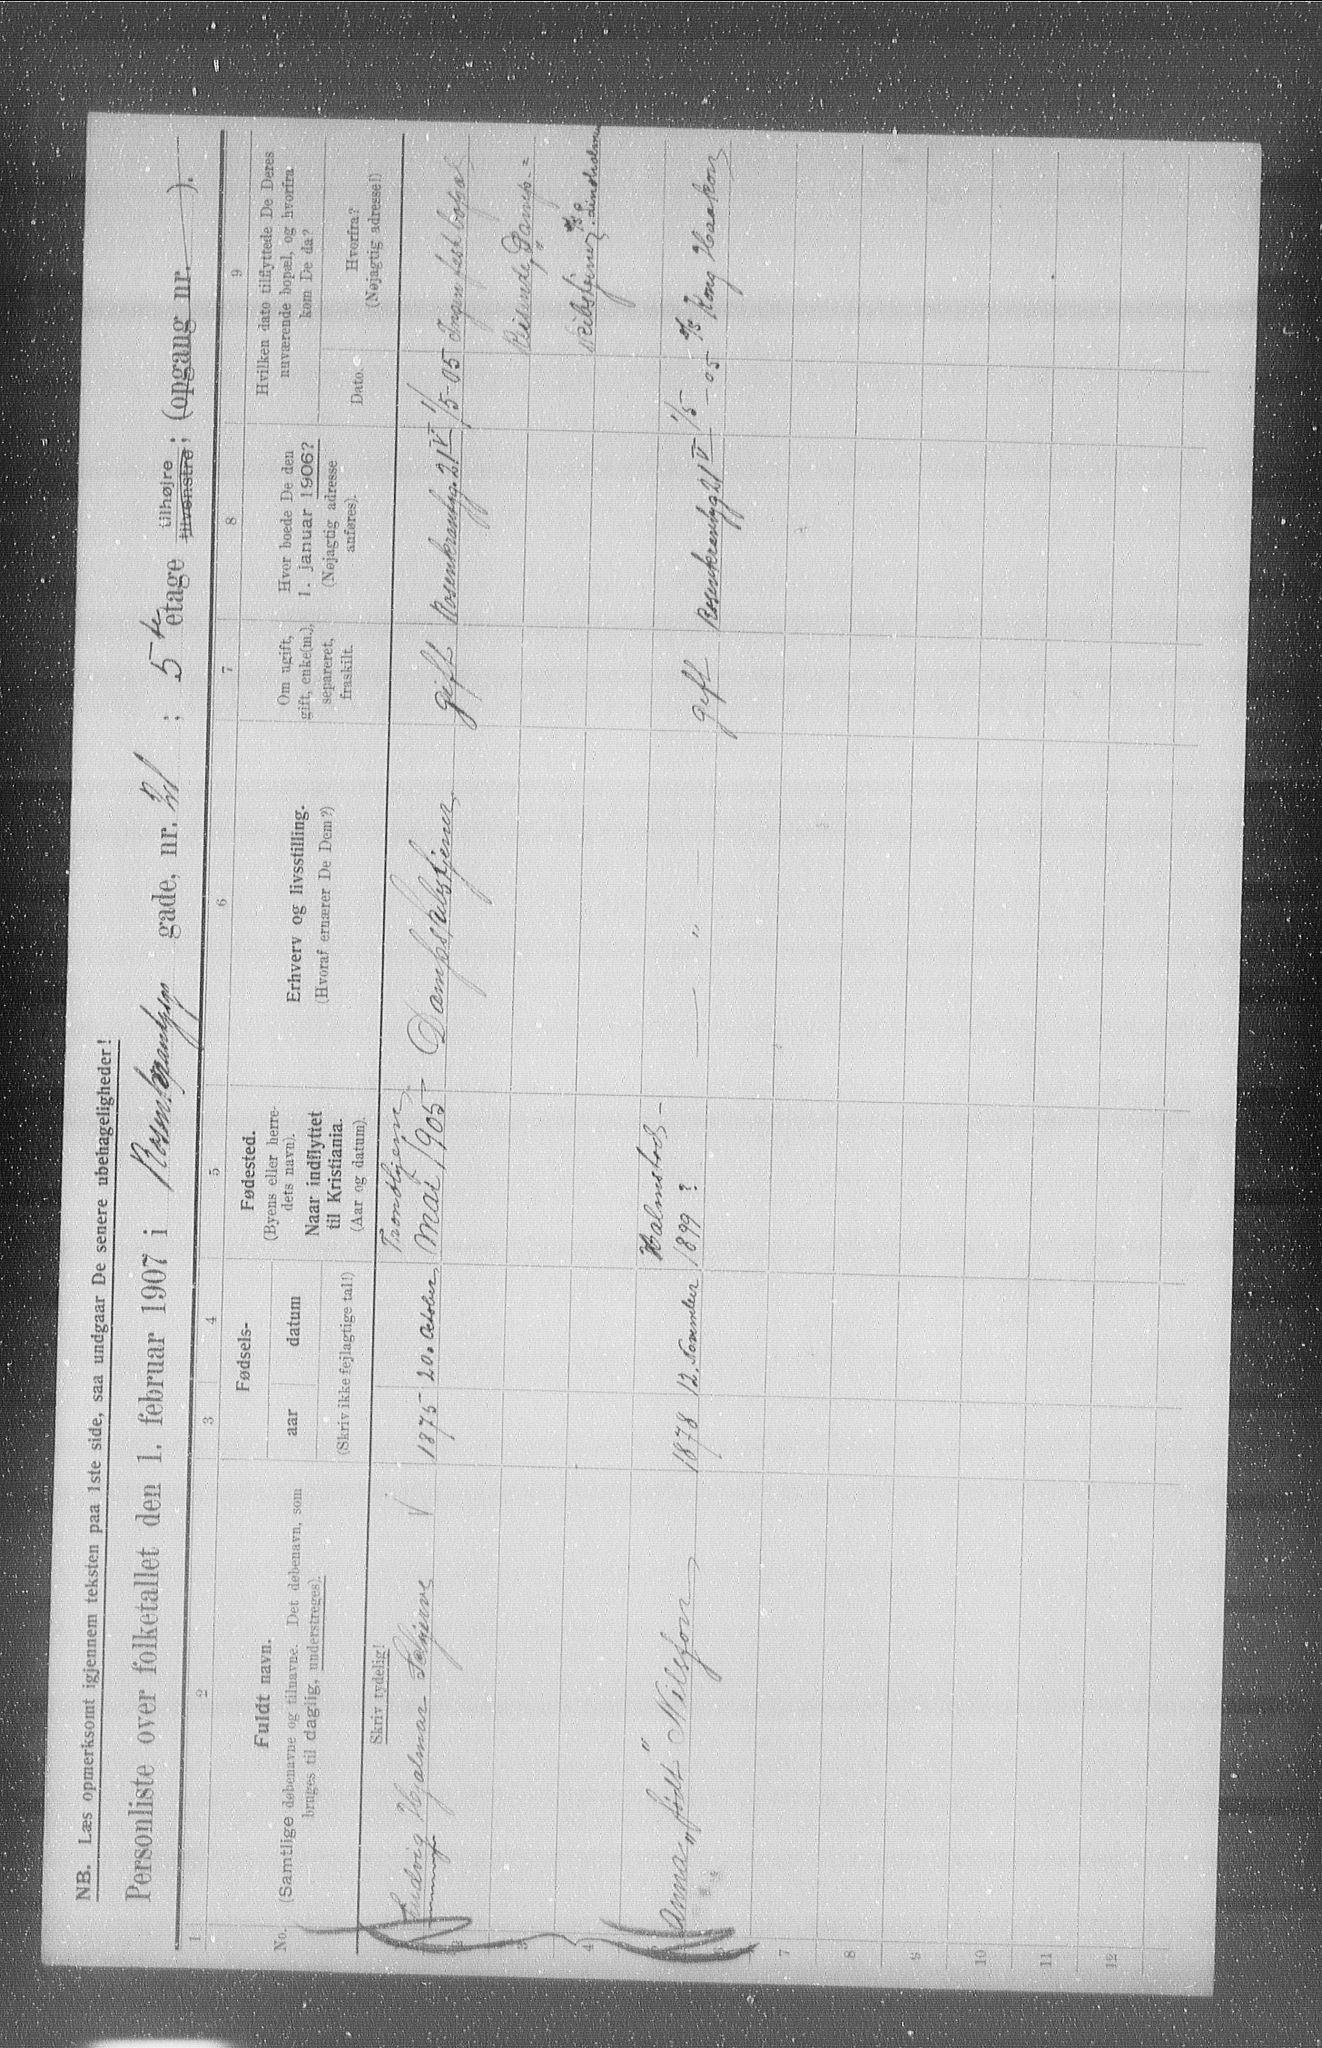 NB. Læs opmerksomt igjennem teksten paa 1ste side, saa undgaar De senere ubehageligheder!
Personliste over folketallet den 1. februar 1907 i Rosenkrantzg gade, nr. 21 ; 5te etage tilhøjre tilvenstre; (opgang nr. ).
1 2 3 4 5 6 7 8 9
No.
Fuldt navn.
(Samtlige døbenavne og tilnavne. Det døbenavn, som
bruges til daglig, understreges).
Skriv tydelig!
Fødsels-
aar datum
(Skriv ikke fejlagtige tal!)
Fødested.
(Byens eller herre-
dets navn).
Naar indflyttet
til Kristiania.
(Aar og datum).
Erhverv og livsstilling.
(Hvoraf ernærer De Dem?)
Om ugift,
gift, enke(m.),
separeret,
fraskilt.
Hvor boede De den
1. januar 1906?
(Nøjagtig adresse
anføres).
Hvilken dato tilflyttede De Deres
nuværende bopæl, og hvorfra
kom De da?
Dato.
Hvorfra?
(Nøjagtig adresse!)
Trondhjem
Ludvig Hjalmar 1875 20. October Mai 1905 Dampskibstjener gift Rosenkrantzg. 21 V 1/5-05 Ingen fast bopæl
2
3 Reisende, Damp-
4 skibstjener
Halmstad -
Anna „født" Nilsson 1878 12. November 1899 ? — " — gift Rosenkrantzg 21 V 1/5-05 Kong Haakon
6
7
8
9
10
11
12